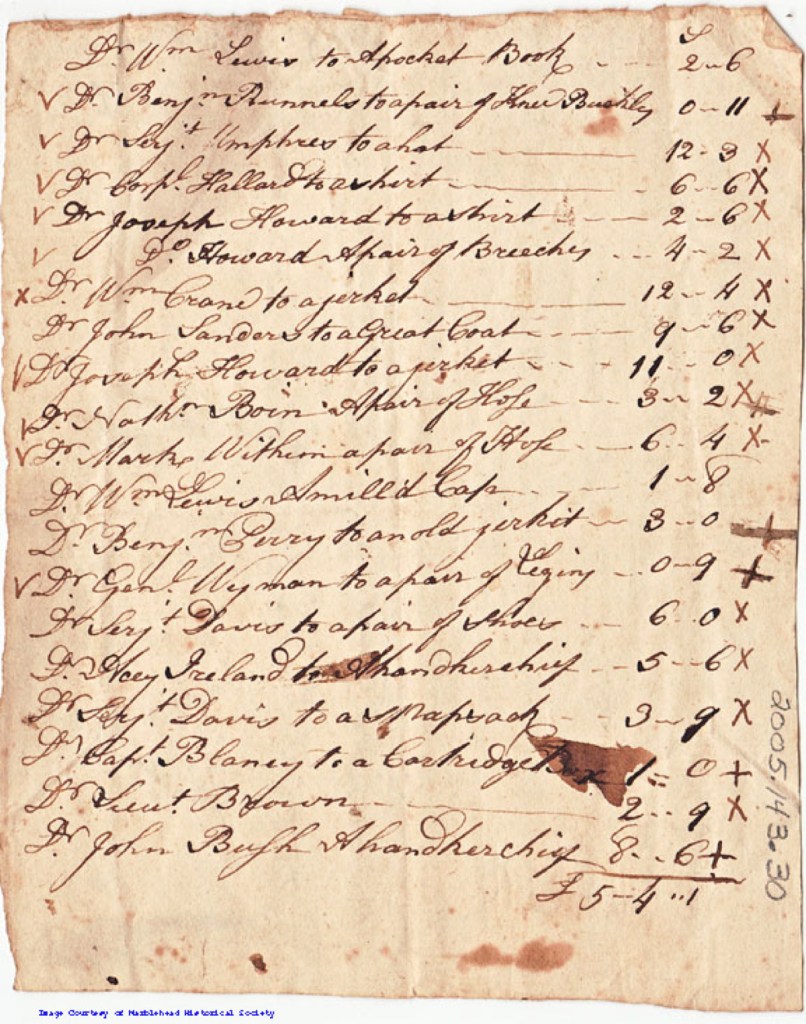 S
Dr Wm Lewis to Apocket Book - - 2 - 6
V Dr Benjn Runnels to apair of Knee Buckles 0 - 11 +
V Dr Serjt Umphres to a hat 12 - 3 X
V Dr Corpl Hallard to a shirt 6 - 6 X
V Dr Joseph Howard to a shirt 2 - 6 X
V Do Howard Apair of Breeches - - 4 - 2 X
x Dr Wm Crane to a jerket 12 - 4 X
Dr John Sanders to a Great Coat 9 - 6 X
V Dr Joseph Howard to a jerket 11 - 0 X
V Dr Nathn Boin Apair of Hose 3 - 2 X
V Dr Mark Withem a pair of Hose 6 - 4 X
Dr Wm Lewis A mill'd Cap 1 - 8
Dr Benjn Perry to an old jerkit 3 - 0 +
V Dr Genl Wyman to a pair of Legins 0 - 9 +
Dr Serjt Davis to a pair of Shoes 6 - 0 X
Dr Ireland to Ahandkerchief 5 - 6 X
Dr Serjt Davis to a snapsack 3 - 9 X
Dr Capt Blaney to a Cartridge Box 1 = 0 +
Dr Lieut Brown 2 - 9 X
Dr John Bush Ahandkerchief 8 - 6 +
£ 5 - 4 " 1
2005.143.30
Image Courtesy of Marblehead Historical Society